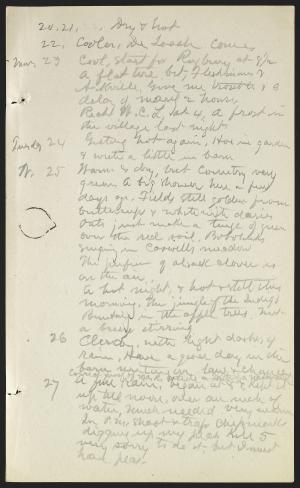 20.21. Dry & hot
22, Cooler, De Loach comes
23 Cool, start for Roxbury at 8 1/2
a flat tire bet, Fleishmanns &
Arkville, give me trouble, & a
delay of nearly 2 hours.
Reach W. C. L. at 4, a frost in
the village last night
Tuesday 24 Getting hot again, Hoe in garden
& write a little in barn
W. 25 Warm & dry, but country very
green. A big shower here a few
days ago. Fields still golden from
buttercups & white with daisies
Oats just make a tinge of green
over the red soil, Bobolinks
singing in Caswells meadow
The perfume of alsack clover is
on the air.
A hot night, & hot & still this
morning. The jingle of the Indigo
Bunting in the apple trees. Not
a breeze stirring
26 Cloudy, with light dashes of
rain, Have a good day in the
barn writing on law & chance
27 A fine rain, began at & kept it
up till noon, over an inch of
water, much needed very warm
In P.M. shoot & trap chipmunks
digging up my peas kill 5
very sorry to do it, but I must
have peas.